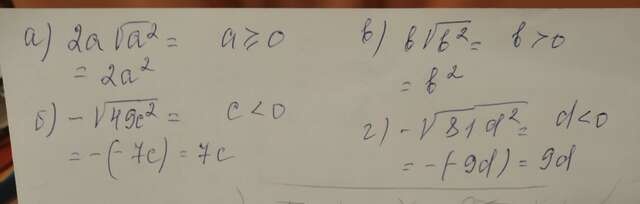 а) 2a √a² = a ⩾ 0
= 2a²
б) -√49c² = c < 0
= -(-7c) = 7c
в) b√b² = b > 0
= b²
г) -√81d² = d < 0
= -(-9d) = 9d